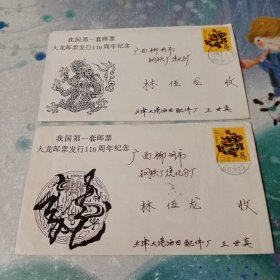 我国第一套邮票
大龙邮票发行110周年纪念
广西柳州市
钢铁厂焦化分厂
林伍龙 收
天津大港油田配件厂 王世英
我国第一套邮票
大龙邮票发行110周年纪念
广西柳州市
钢铁厂焦化分厂
林伍龙 收
天津大港油田配件厂 王世英